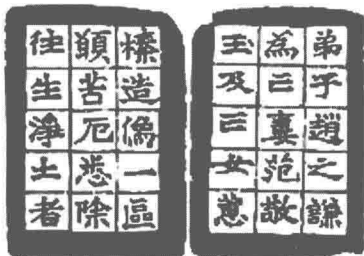 弟子趙之謙
為亡妻范敬
玉及亡女蕙
榛造像一區
願苦厄悉除
往生淨土者